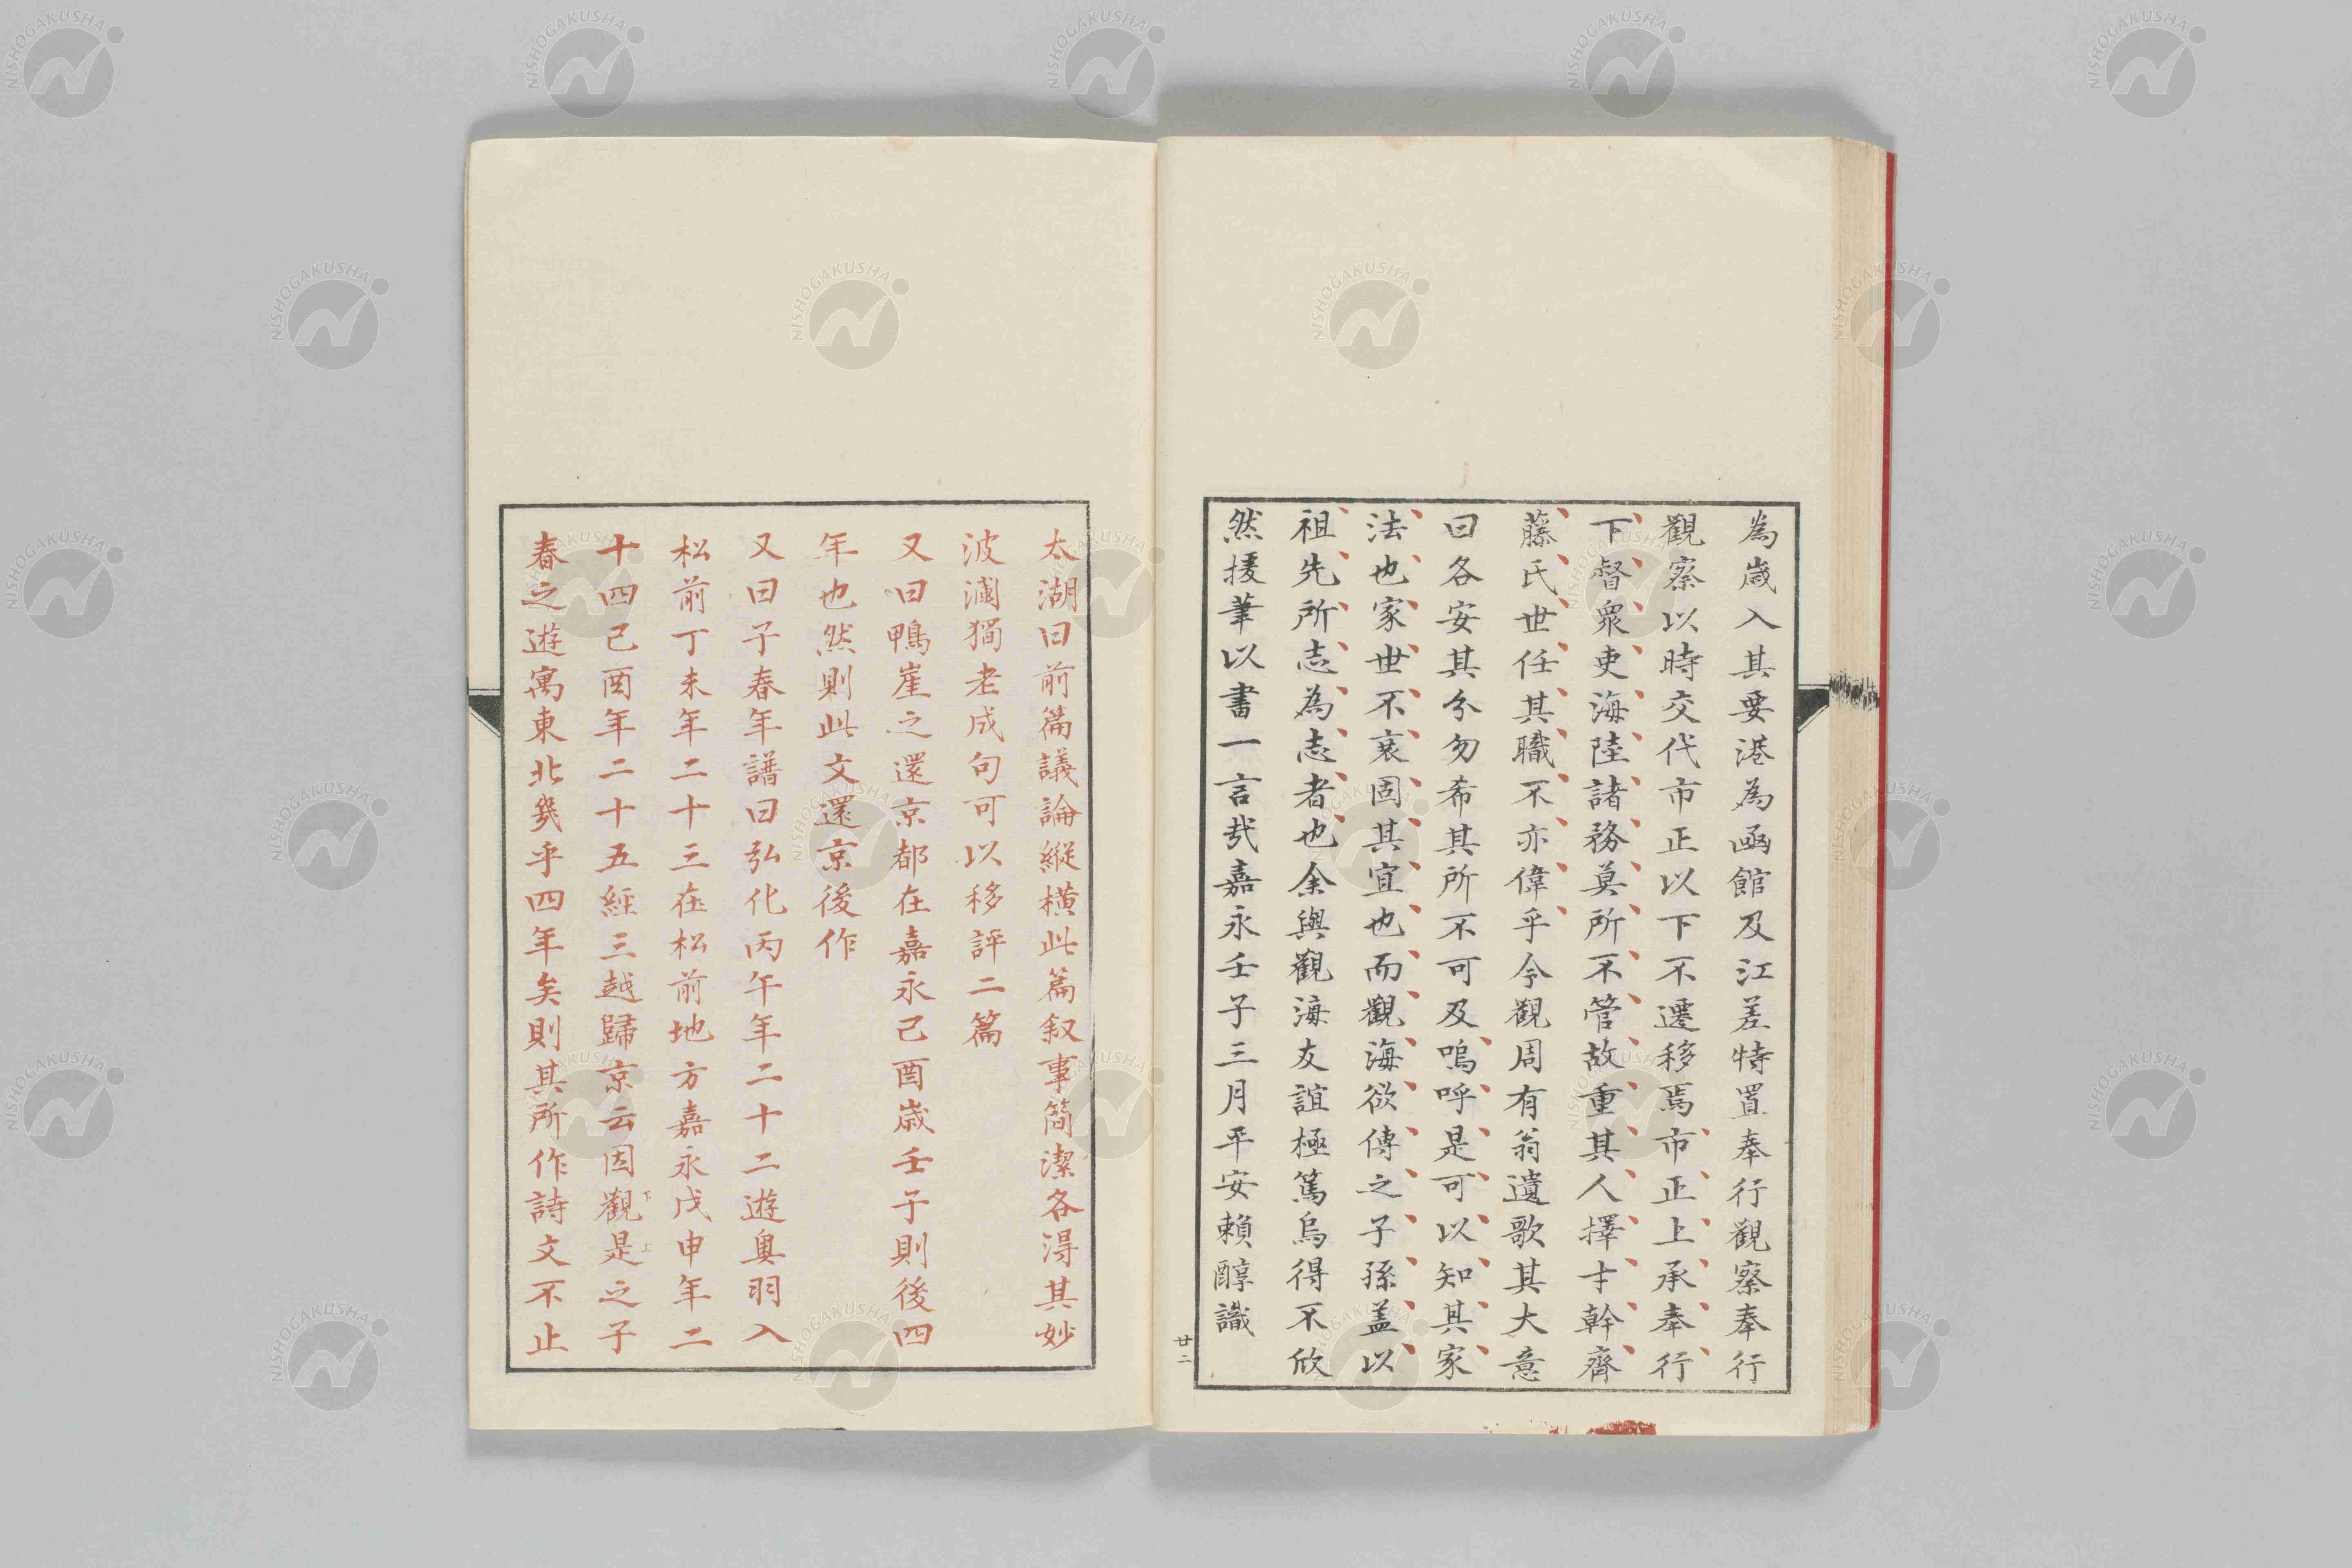 為歳入其要港為函館及江差特置奉行觀察奉行
觀察以時交代市正以下不遷移焉市正上承奉行
下督衆吏海陸諸務莫所不管故重其人擇才幹齊
藤氏世任其職不亦偉乎今觀周有翁遺歌其大意
曰各安其分勿希其所不可及嗚呼是可以知其家
法也家世不衰固其宜也而觀海欲傳之子孫盖以
祖先所志為志者也余與觀海友誼極篤烏得不欣
然援筆以書一言哉嘉永壬子三月平安賴醇識
廿二
太湖曰前篇議論縱橫此篇叙事簡潔各得其妙
波瀾獨老成句可以移評二篇
又曰鴨崖之還京都在嘉永己酉歳壬子則後四
年也然則此文還京後作
又曰子春年譜曰弘化丙午年二十二遊奥羽入
松前丁未年二十三在松前地方嘉永戊申年二
十四己酉年二十五經三越歸京云因觀是之子
下
上
春之遊寓東北幾乎四年矣則其所作詩文不止
NISHOGAKUSHA